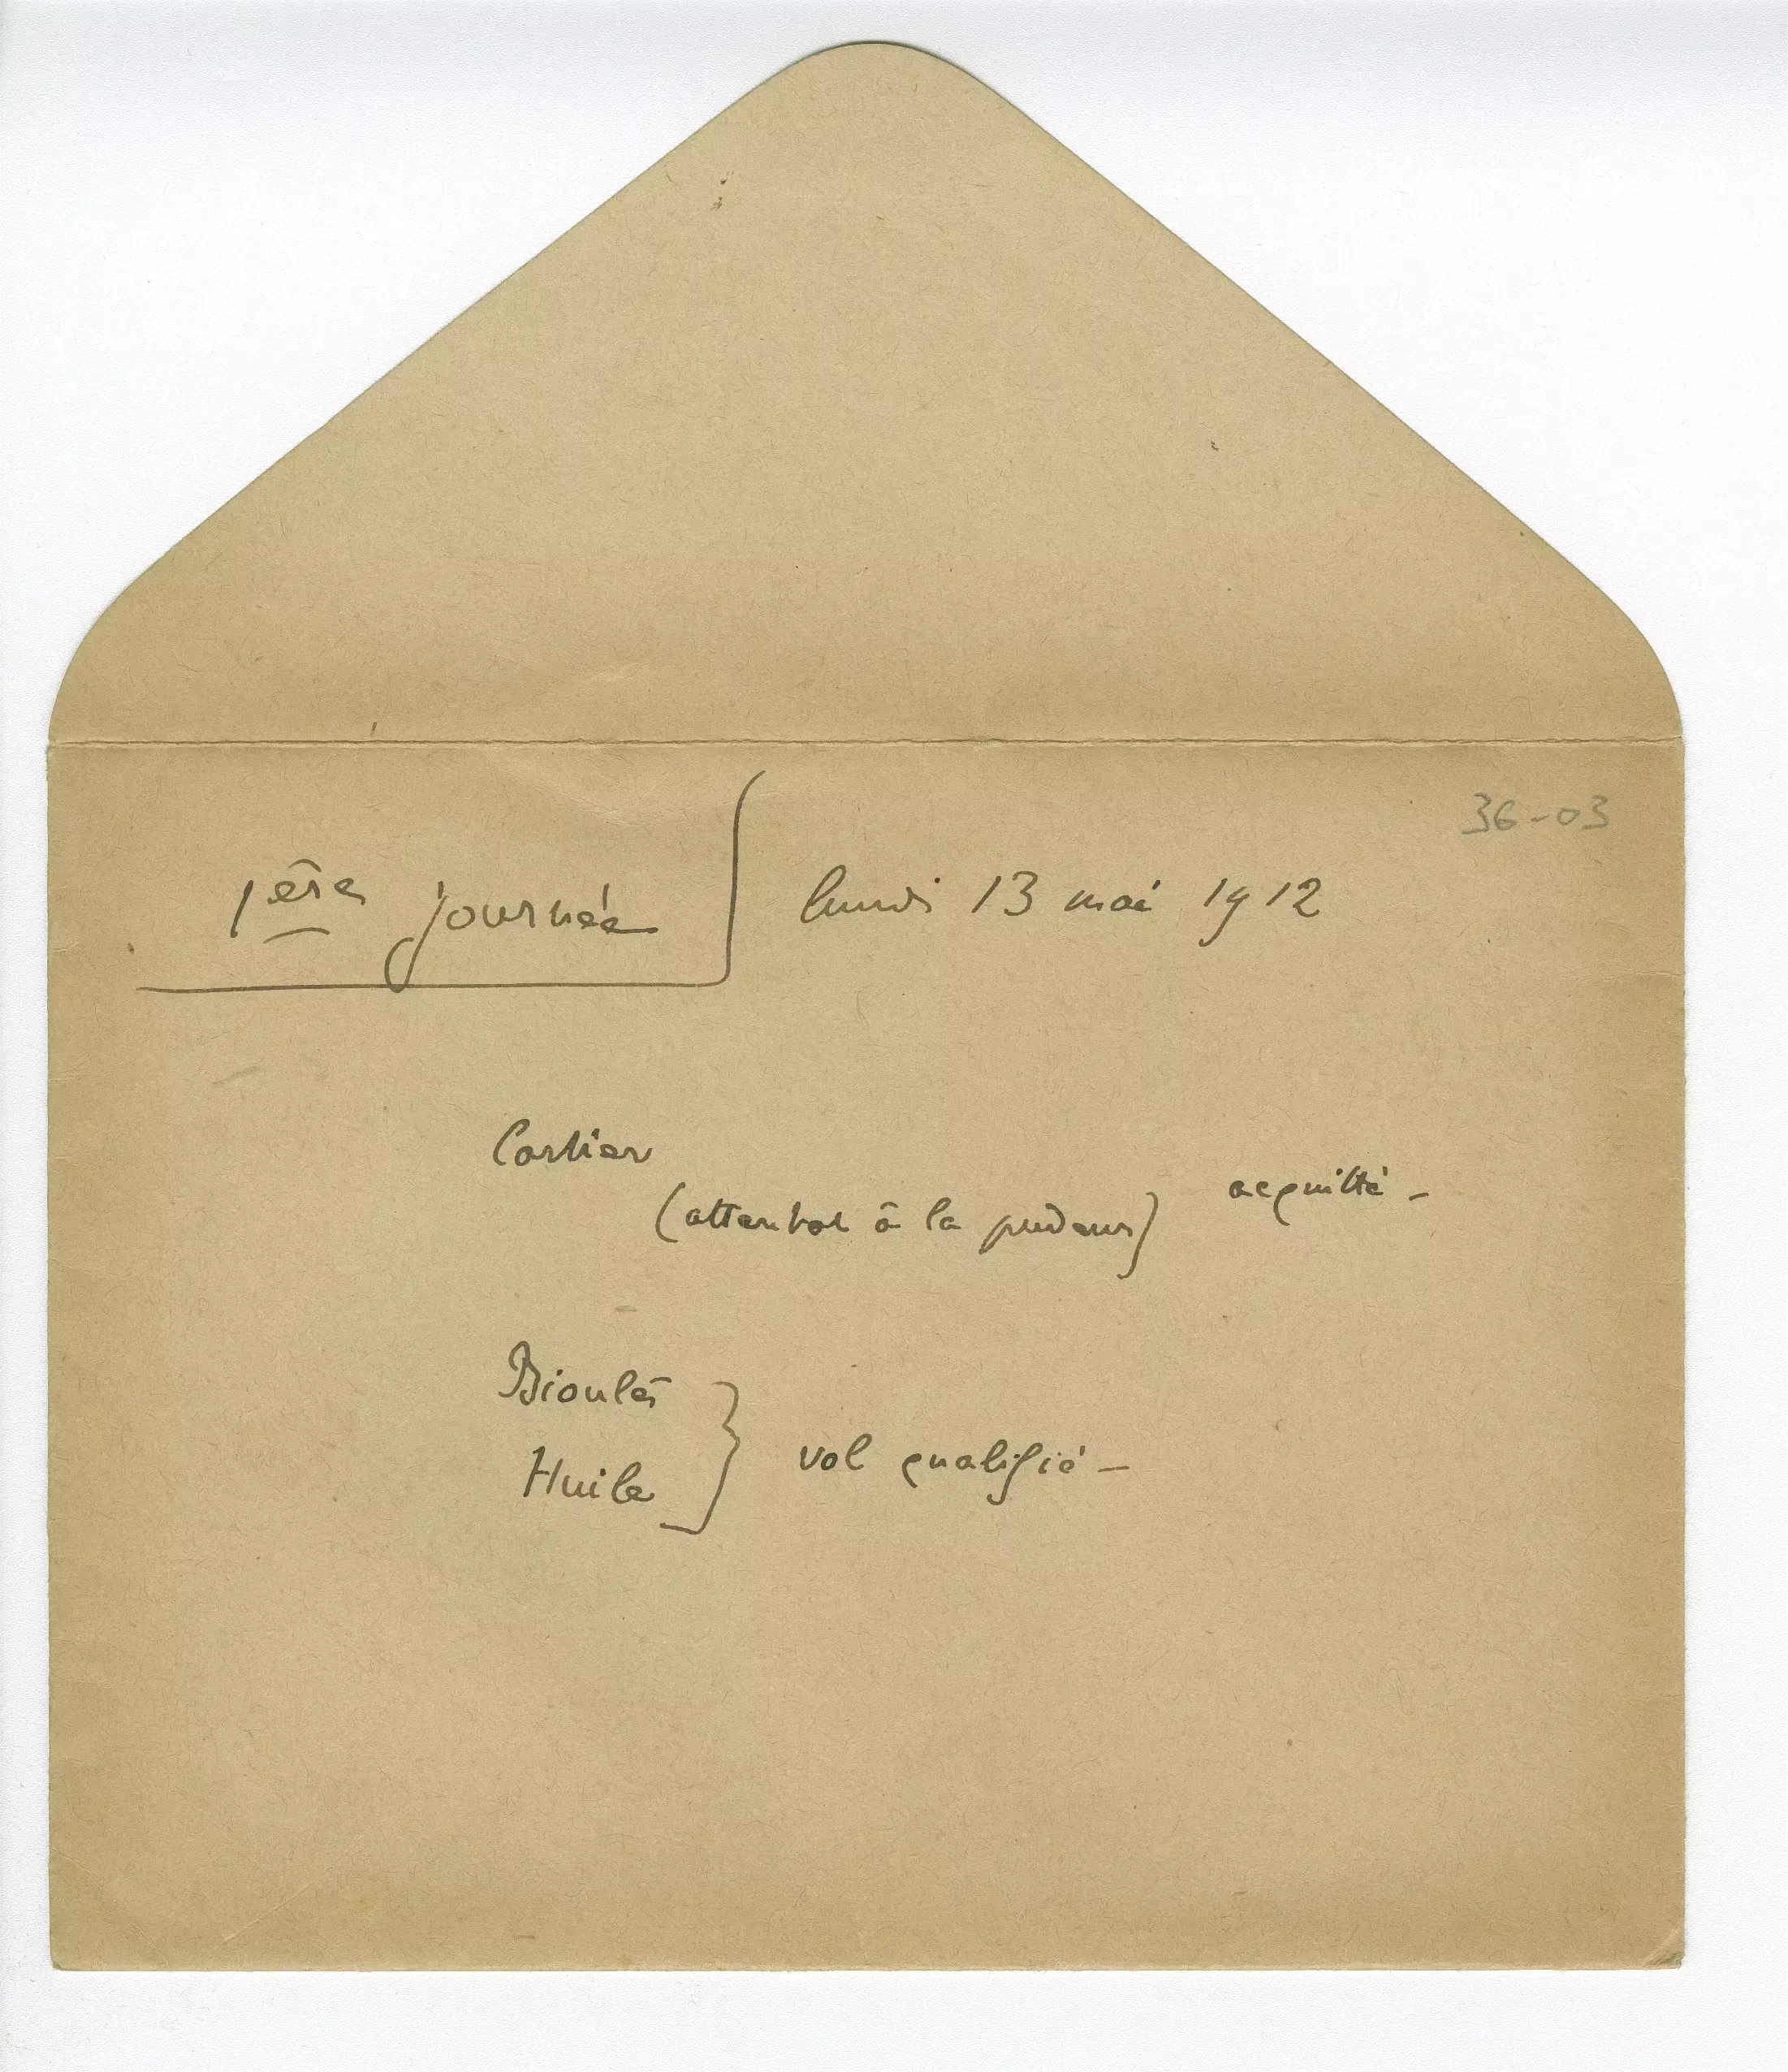 36-03
1ère journée lundi 13 mai 1912
Cartier
(attentat à la pudeur) acquitté -
Bioulès
Huile } vol qualifié -